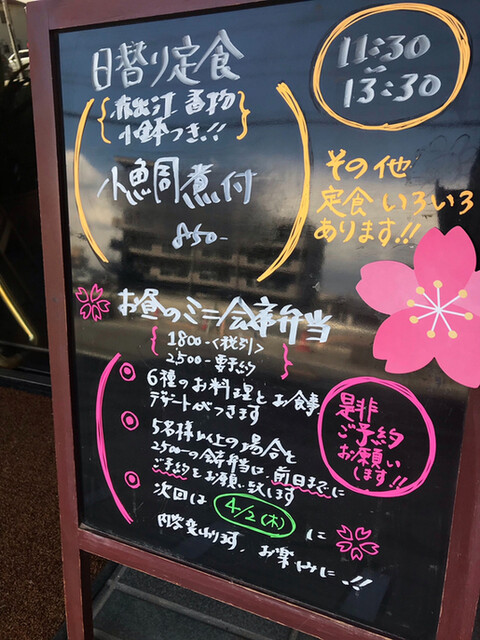 日替り定食
11:30
~
13:30
赤出汁 香物
小鉢つき!!
小鯛煮付
850-
その他
定食いろいろ
あります!!
お昼のミニ会席弁当
1800-<税引>
2500-要予約
6種のお料理とお食事
デザートがつきます
5名様以上の場合と
2500-の会席弁当は前日までに
ご予約をお願い致します
次回は 4/2(木) に
内容変わります、お楽しみに!!
是非
ご予約
お願い
します!!